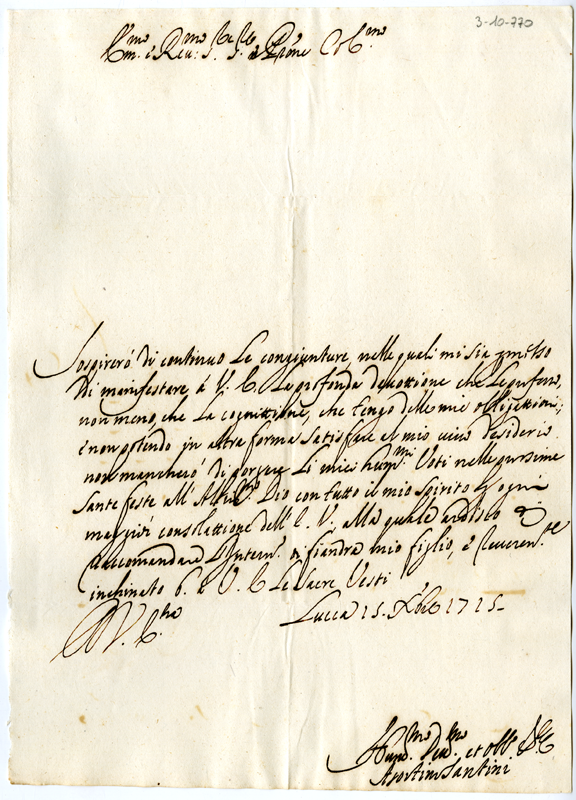 3-10-770
Em.mo e Rev.mo S.r S.r e P̃rone Col.mo
Sospirerò di continuo Le congiunture, nelle quali mi sia ꝑmesso
di manifestare à V. E. La ꝓfonda devottione che Le ꝓfesso,
non meno, che La cognittione, che tengo delle mie obligattioni;
è non potendo in altra forma satisfare al mio vivo desiderio
non mancherò di porgere Li miei hum.mi Voti nelle prossime
Sante feste all' Altis.mo Dio con tutto il mio Spirito ꝑ ogni
maggior consolattione dell' E. V. alla quale ardisco di
raccomandare L'Intern.o di fiandra mio figlio, è reveren.te
inchinato b. à V. E. Le Sacre Vesti
Lucca 15. Xbre 1715
D V. E.za
Hum.mo Dev.mo et obb. S.re
Agostino Santini